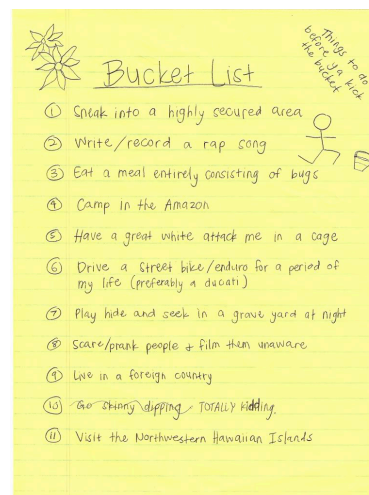 Things to do
before ya kick
the bucket
Bucket List
1 Sneak into a highly secured area
2 Write/record a rap song
3 Eat a meal entirely consisting of bugs
4 Camp in the Amazon
5 Have a great white attack me in a cage
6 Drive a street bike/enduro for a period of
my life (preferably a ducati)
7 Play hide and seek in a grave yard at night
8 Scare/prank people + film them unaware
9 Live in a foreign country
10 Go skinny dipping, TOTALLY kidding.
11 Visit the Northwestern Hawaiian Islands